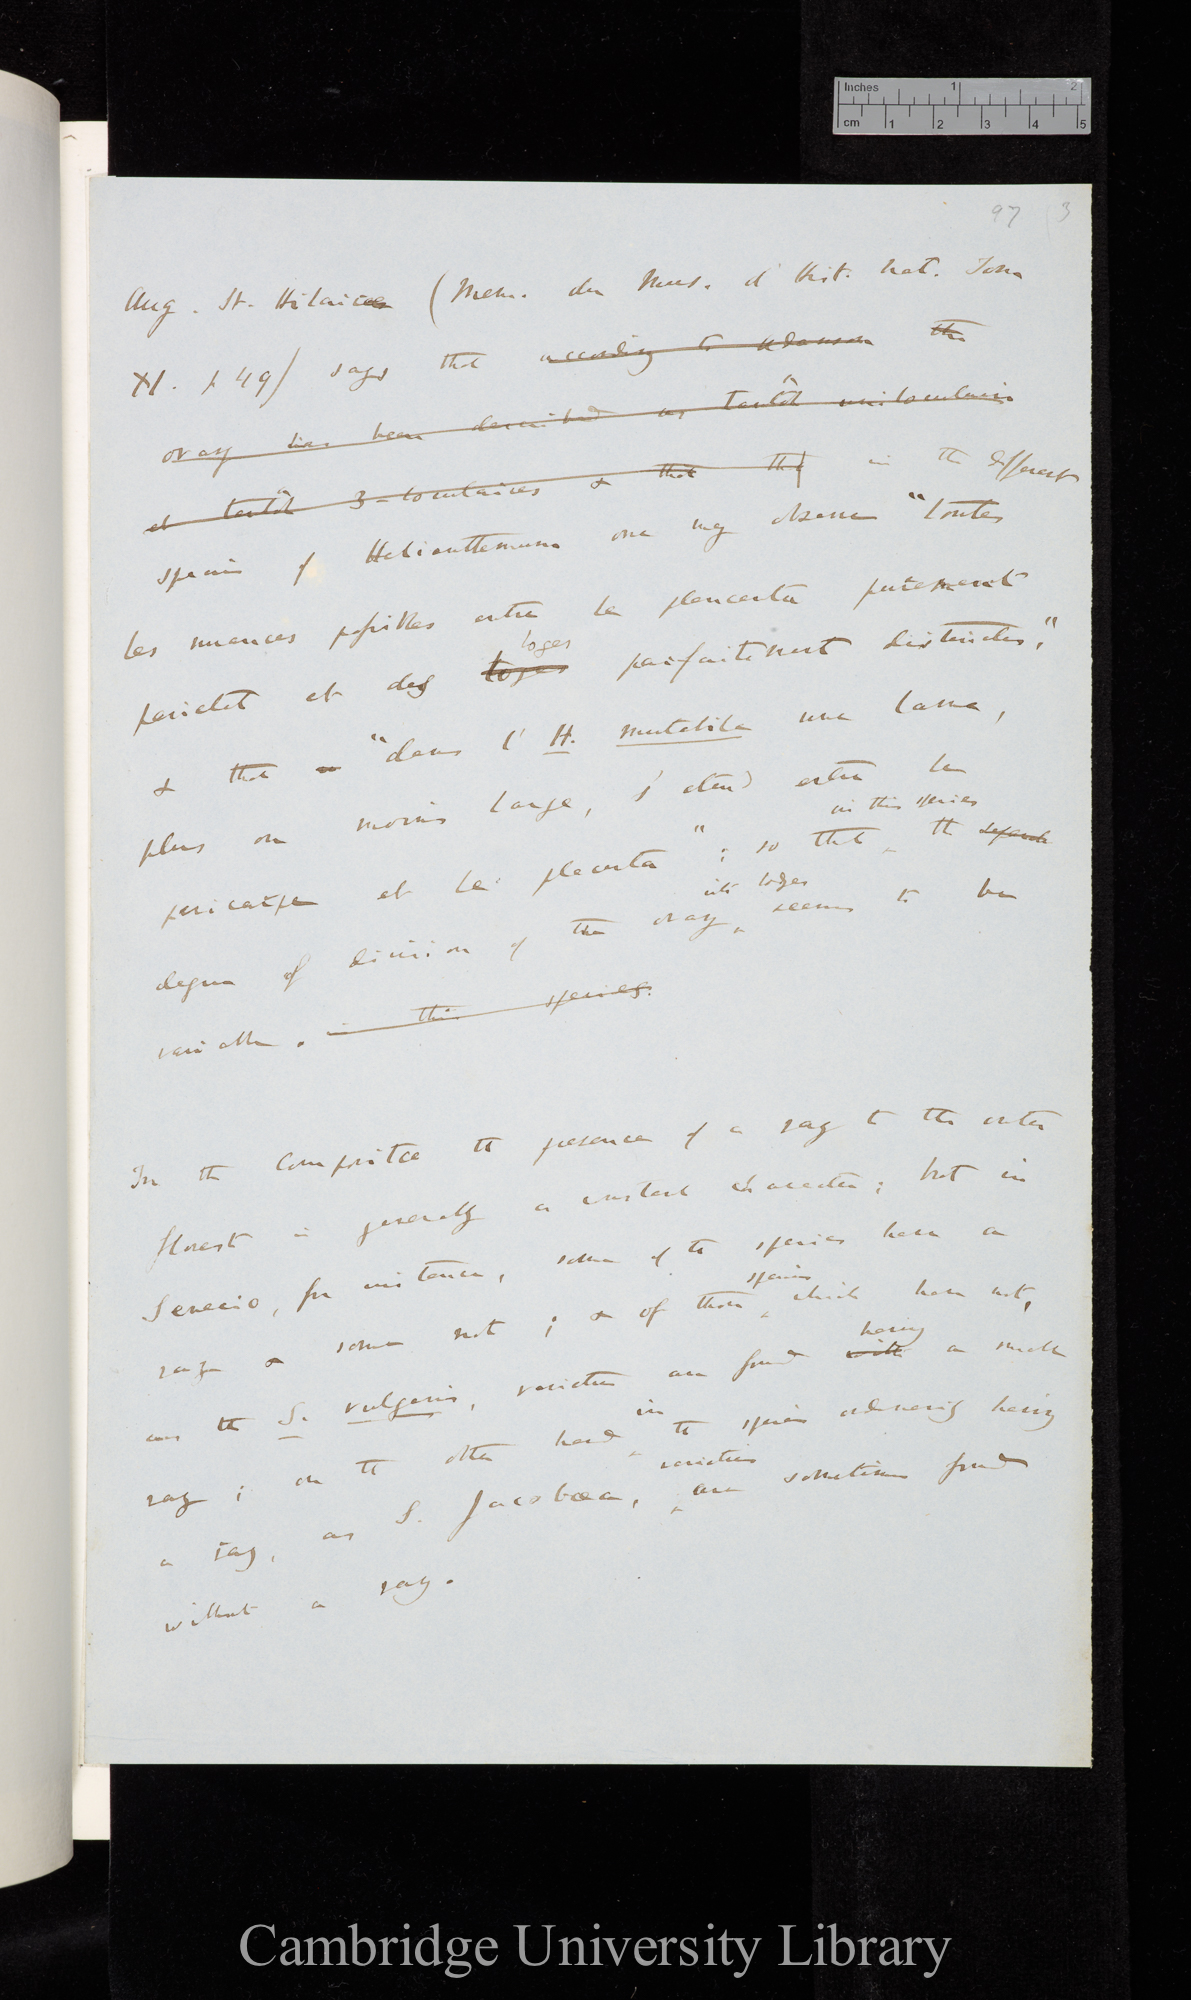 Inches 1 2
cm 1 2 3 4 5
97 (3
Aug. St. Hilaire (Mem. du Mus. d' Hist. nat. Tom
XI. p 49) says that according to Adanson the
ovary has been described as tantôt uniloculaires
et tantôt 3-loculaires & that the in the different
species of Helianthemum one may observe "toutes
les nuances possibles entre le placenta purement
loges
parietal et des loges parfaitement distinctes,"
& that "dans l' H. mutabile une lame,
plus ou moins large, s'etend entre le
in this species
pericarpe et le placenta"; so that, the
into loges
degree of division of the ovary, seems to be
variable. in this species.
In the Compositæ the presence of a ray to the outer
florest is generally a constant character; but in
Senecio, for instance, some of the species have a
species
rays & some not; & of those, which have not,
having
as the S. vulgaris, varieties are found with a small
in
ray; on the other hand, the species ordinarily having
varieties
a ray, as S. Jacobœa, are sometimes found
without a ray.
Cambridge University Library